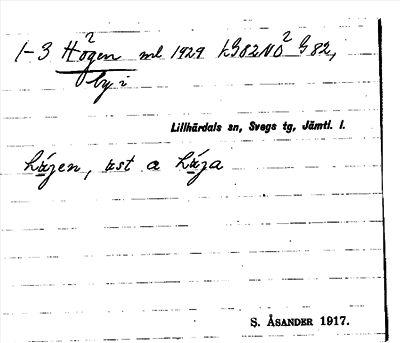 1-3 Högen ml 1929 kG82NO² G82,
by i
Lillhärdals sn, Svegs tg, Jämtl. l.
hǻjen, ust a hǻja
S. ÅSANDER 1917.